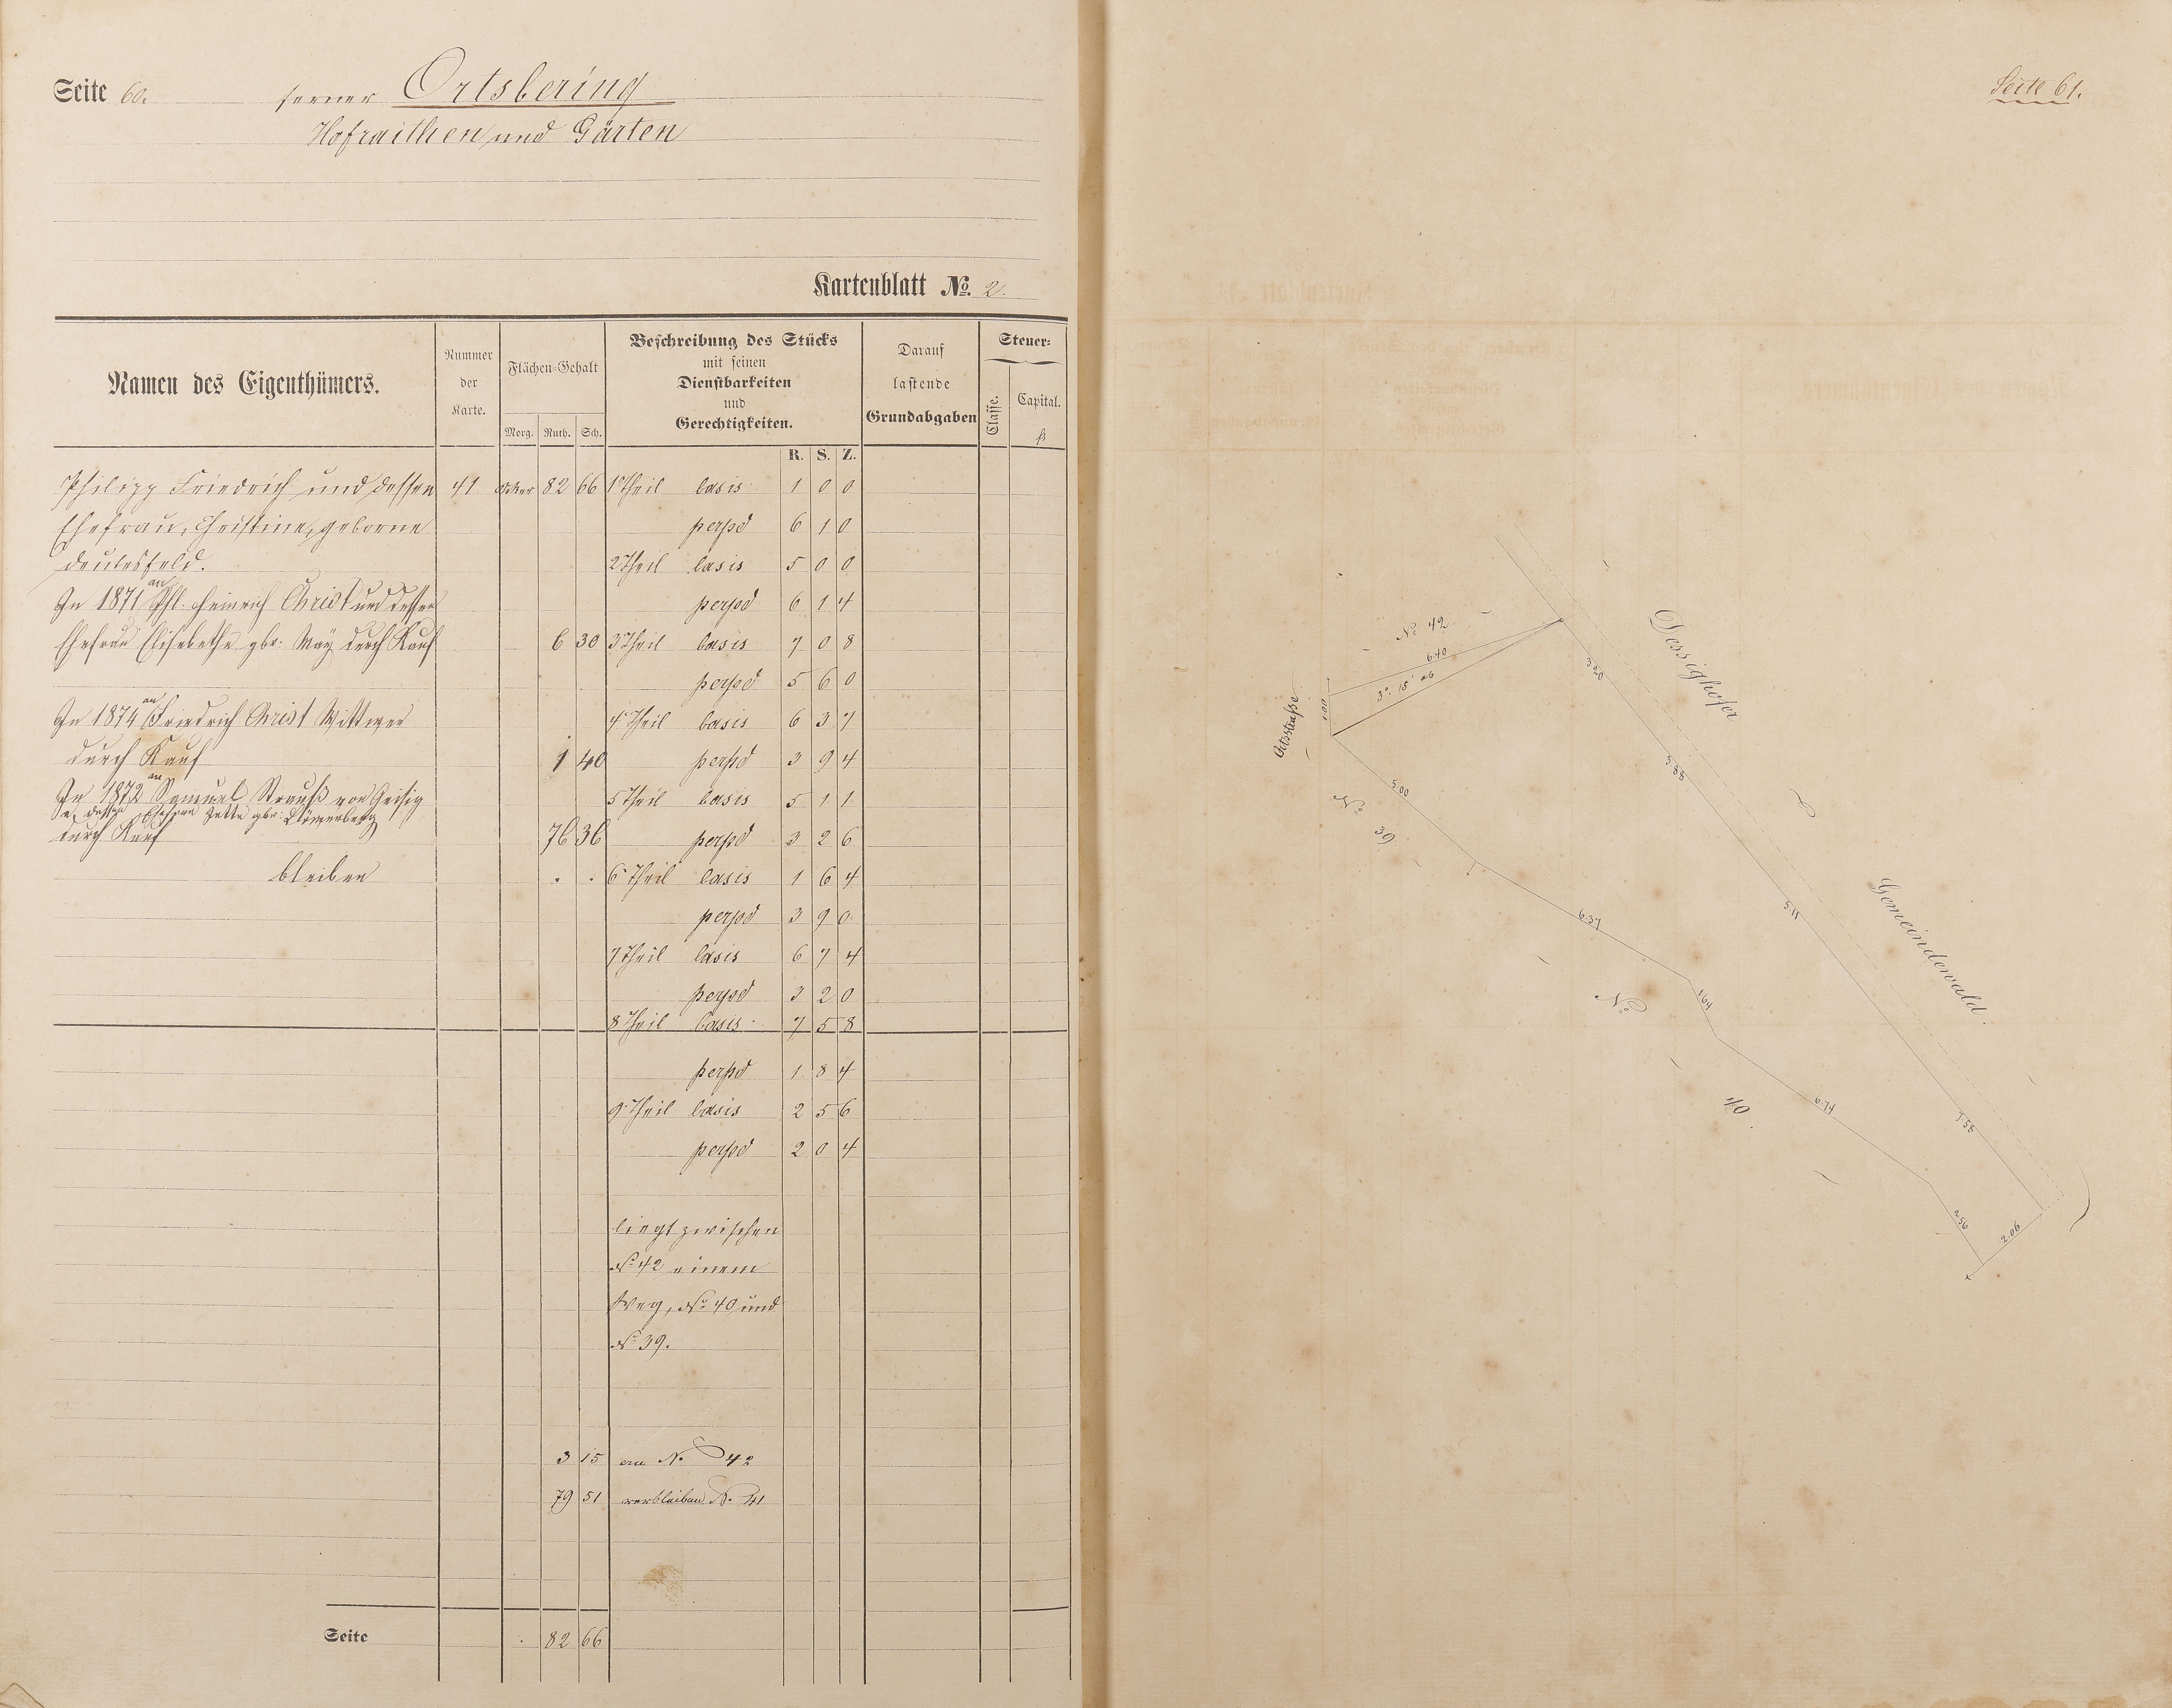 Seite 60. ferner Ortsbering
Hofraithen und Gärten
Kartenblatt No. 2.
Namen des Eigenthümers.
Nummer der Karte.
Flächen-Gehalt
Morg. Ruth. Sch.
Beschreibung des Stücks
mit seinen
Dienstbarkeiten
und
Gerechtigkeiten.
Darauf
lastende
Grundabgaben
Steuer-
Classe.
Capital.
fl
R. S. Z.
Philipp Friedrich und dessen 41 Acker 82 66 1 Theil basis 1 0 0
Ehefrau, Christine, geborne perpd 6 1 0
Deutesfeld. 2 Theil basis 5 0 0
In 1871 an Phl. Heinrich Christ und dessen perpd 6 1 4
Ehefrau Elisabethe gbr. May durch Kauf 6 30 3 Theil basis 7 0 8
perpd 5 6 0
In 1874 an Friedrich Christ Wittwer 4 Theil basis 6 3 7
durch Kauf 1 40 perpd 3 9 4
In 1872 an Samuel Strauß von Geisig 5 Theil basis 5 1 1
dessen Ehefrau Jette gbr. Löwenberg
durch Kauf 76 36 perpd 3 2 6
bleiben . . 6 Theil basis 1 6 4
perpd 3 9 0
7 Theil basis 6 7 4
perpd 3 2 0
8 Theil basis 7 5 8
perpd 1 8 4
9 Theil basis 2 5 6
perpd 2 0 4
liegt zwischen
No 42 einem
Weg, No 40 und
No 39.
3 15 an No. 42
79 51 verbleiben No. 41
Seite . 82 66
Seite 61.
No 42
6.40
3°. 15' ab
1.00
Ortsstraße
3.20
Dessighofer
3.88
5.00
No 39
5.11
6.37
Gemeindewald.
1.64
No 40.
6.74
7.58
2.56
2.06